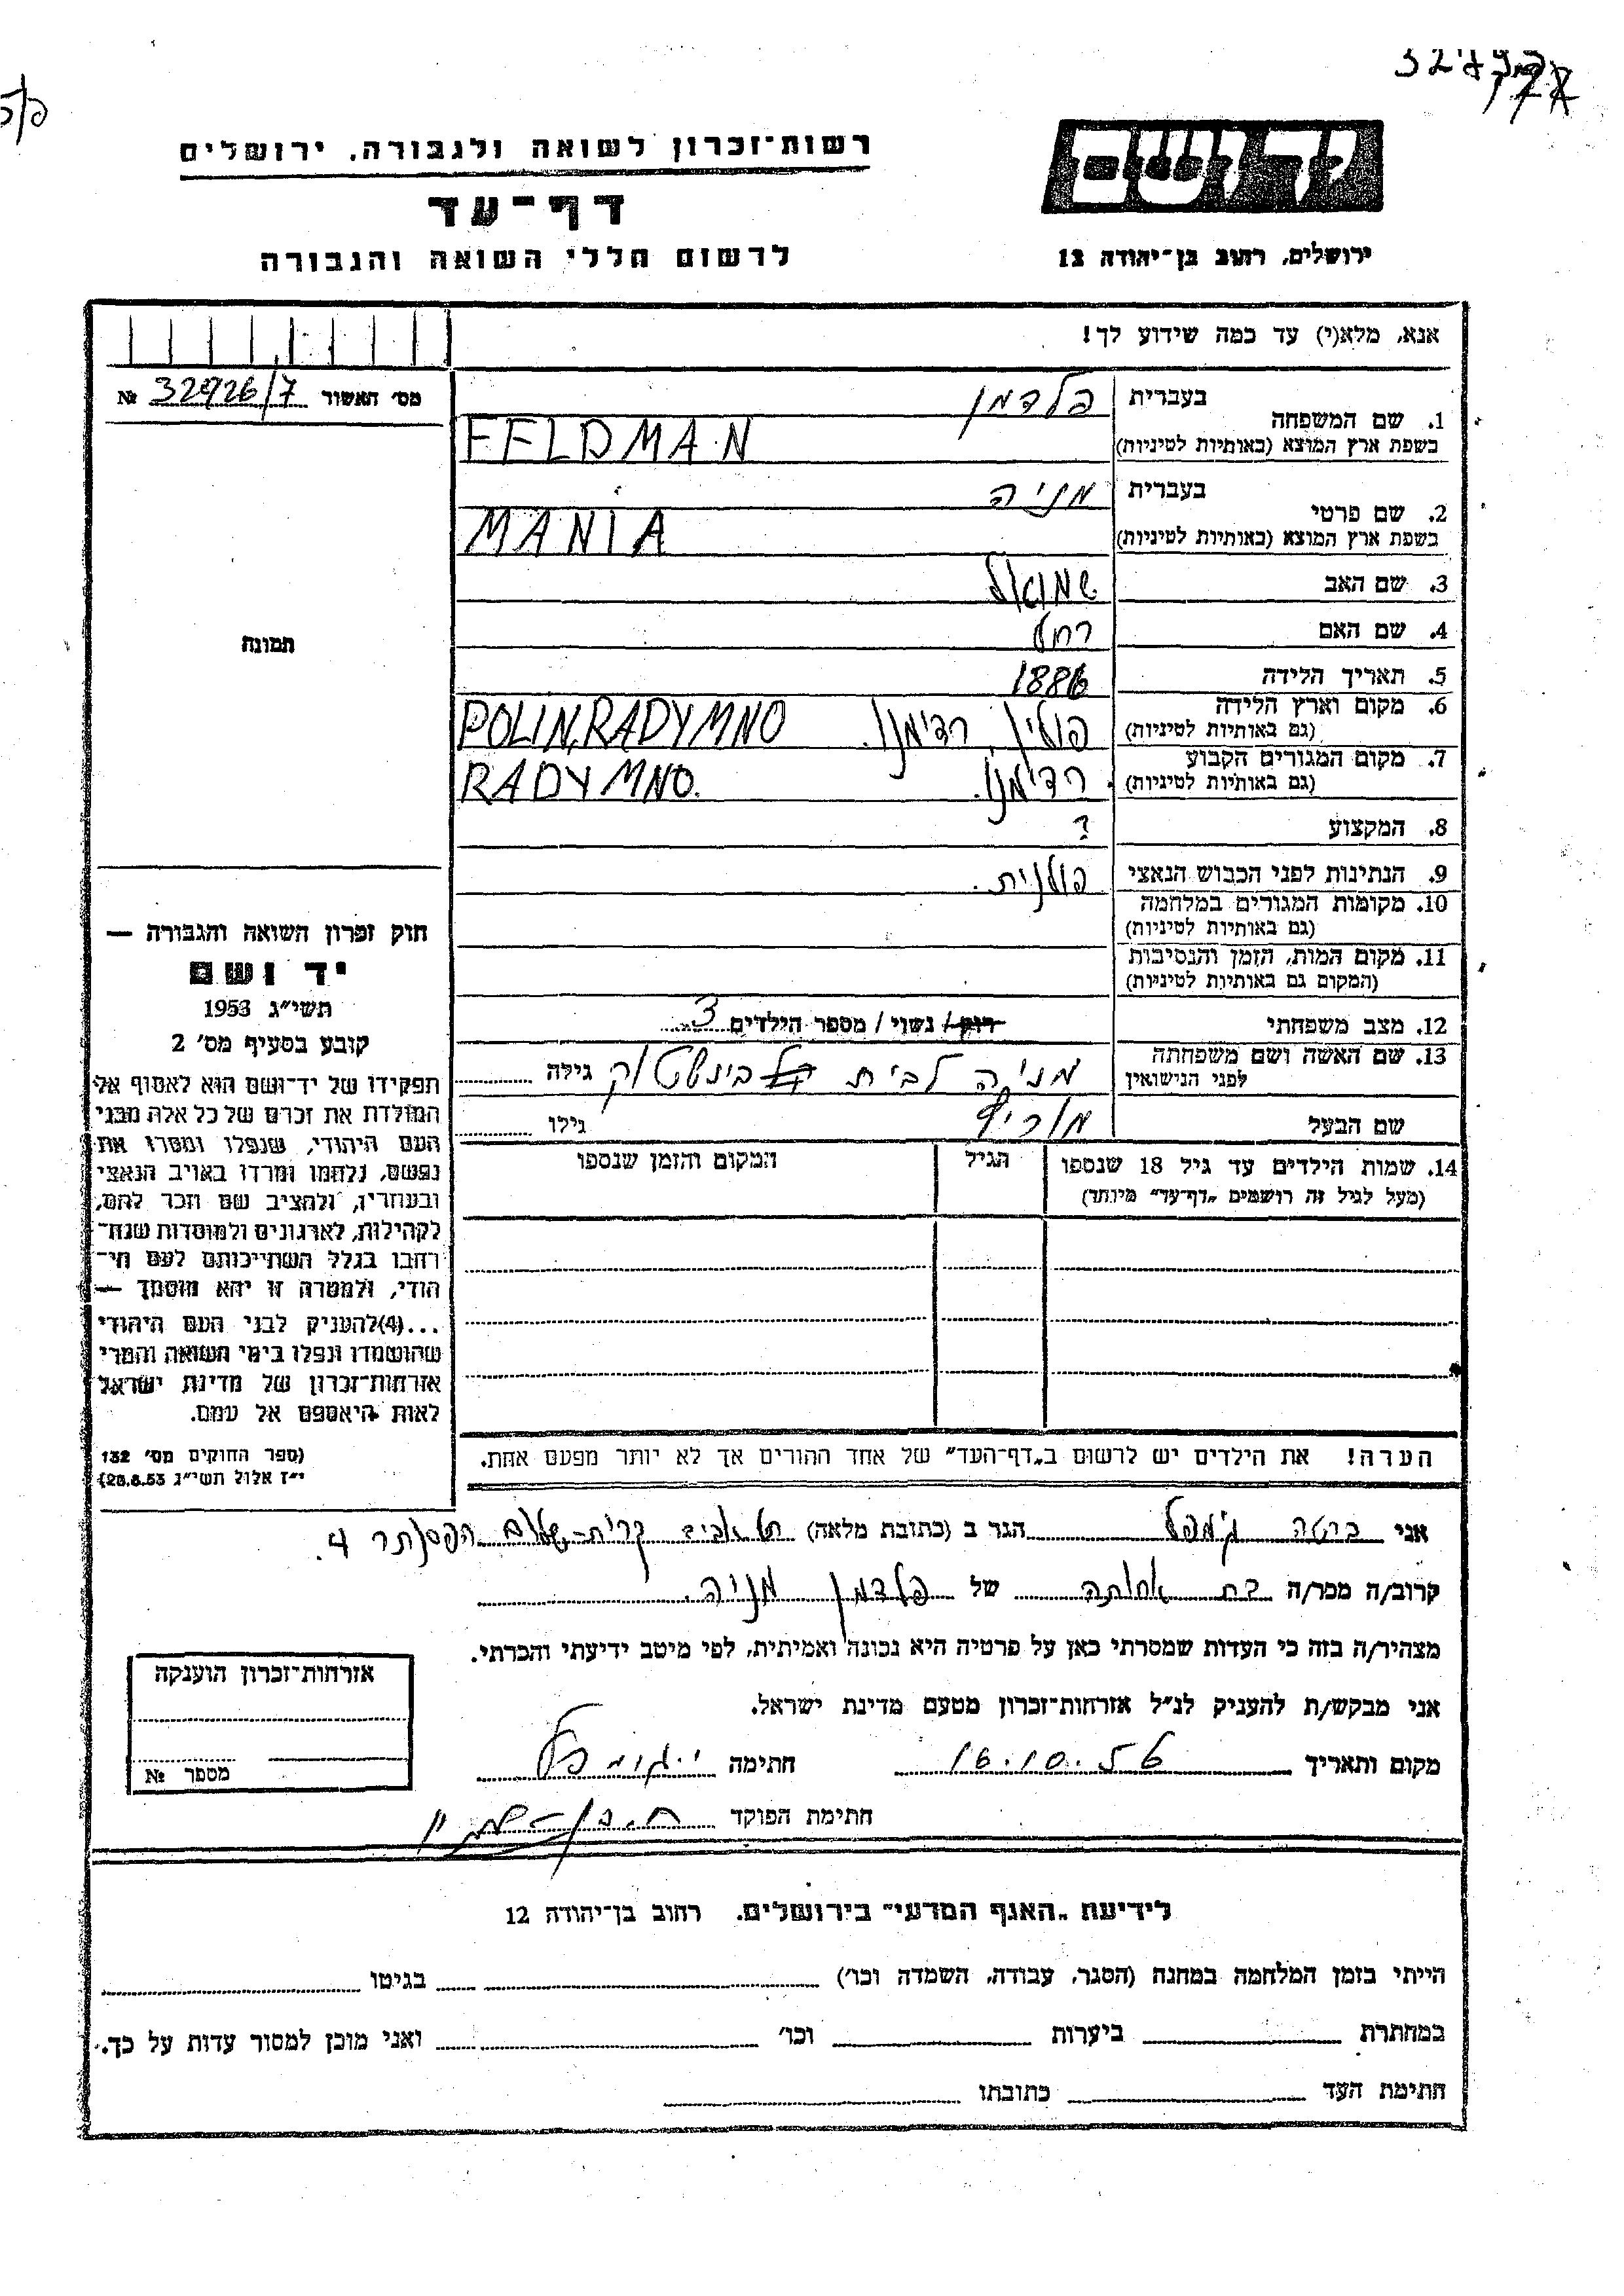 רשות־זכרון לשואה ולגבורה, ירושלים
דף־עד
לרשום חללי השואה והגבורה
יד ושם
ירושלים, רחוב בן־יהודה 12
אנא, מלא(י) עד כמה שידוע לך!
מס' האשור 32926/7 №
1. שם המשפחה
בעברית פלדמן
בשפת ארץ המוצא (באותיות לטיניות) FELDMAN
2. שם פרטי
בעברית מניה
בשפת ארץ המוצא (באותיות לטיניות) MANIA
3. שם האב שמואל
4. שם האם רחל
5. תאריך הלידה 1886
6. מקום וארץ הלידה
(גם באותיות לטיניות) פולין, רדימנו. POLIN, RADYMNO
7. מקום המגורים הקבוע
(גם באותיות לטיניות) רדימנו. RADYMNO.
8. המקצוע ?
9. הנתינות לפני הכבוש הנאצי פולנית.
10. מקומות המגורים במלחמה
(גם באותיות לטיניות)
11. מקום המות, הזמן והנסיבות
(המקום גם באותיות לטיניות)
12. מצב משפחתי רוק/ נשוי / מספר הילדים 3
13. שם האשה ושם משפחתה
לפני הנישואין מניה לבית גילה
שם הבעל גילו
14. שמות הילדים עד גיל 18 שנספו
(מעל לגיל זה רושמים "דף־עד" מיוחד)
הגיל
המקום והזמן שנספו
הערה! את הילדים יש לרשום ב"דף־העד" של אחד ההורים אך לא יותר מפעם אחת.
תמונה
חוק זכרון השואה והגבורה —
יד ושם
תשי"ג 1953
קובע בסעיף מס' 2
תפקידו של יד־ושם הוא לאסוף אל
המולדת את זכרם של כל אלה מבני
העם היהודי, שנפלו ומסרו את
נפשם, נלחמו ומרדו באויב הנאצי
ובעוזריו, ולהציב שם וזכר להם,
לקהילות, לארגונים ולמוסדות שנח־
רבו בגלל השתייכותם לעם הי־
הודי, ולמטרה זו יהא מוסמך —
...(4)להעניק לבני העם היהודי
שהושמדו ונפלו בימי השואה והמרי
אזרחות־זכרון של מדינת ישראל
לאות היאספם אל עמם.
(ספר החוקים מס' 132
י"ז אלול תשי"ג 28.8.53)
אני ברטה גימפל הגר ב (כתובת מלאה) תל אביב קרית־שלום 4.
קרוב/ה מכר/ה בת אחותה של פלדמן מניה.
מצהיר/ה בזה כי העדות שמסרתי כאן על פרטיה היא נכונה ואמיתית, לפי מיטב ידיעתי והכרתי.
אני מבקש/ת להעניק לנ"ל אזרחות־זכרון מטעם מדינת ישראל.
מקום ותאריך 16.10.56 חתימה
חתימת הפוקד
אזרחות־זכרון הוענקה
מספר №
לידיעת "האגף המדעי" בירושלים, רחוב בן־יהודה 12
הייתי בזמן המלחמה במחנה (הסגר, עבודה, השמדה וכו') בגיטו
במחתרת ביערות וכו' ואני מוכן למסור עדות על כך.
חתימת העד כתובתו